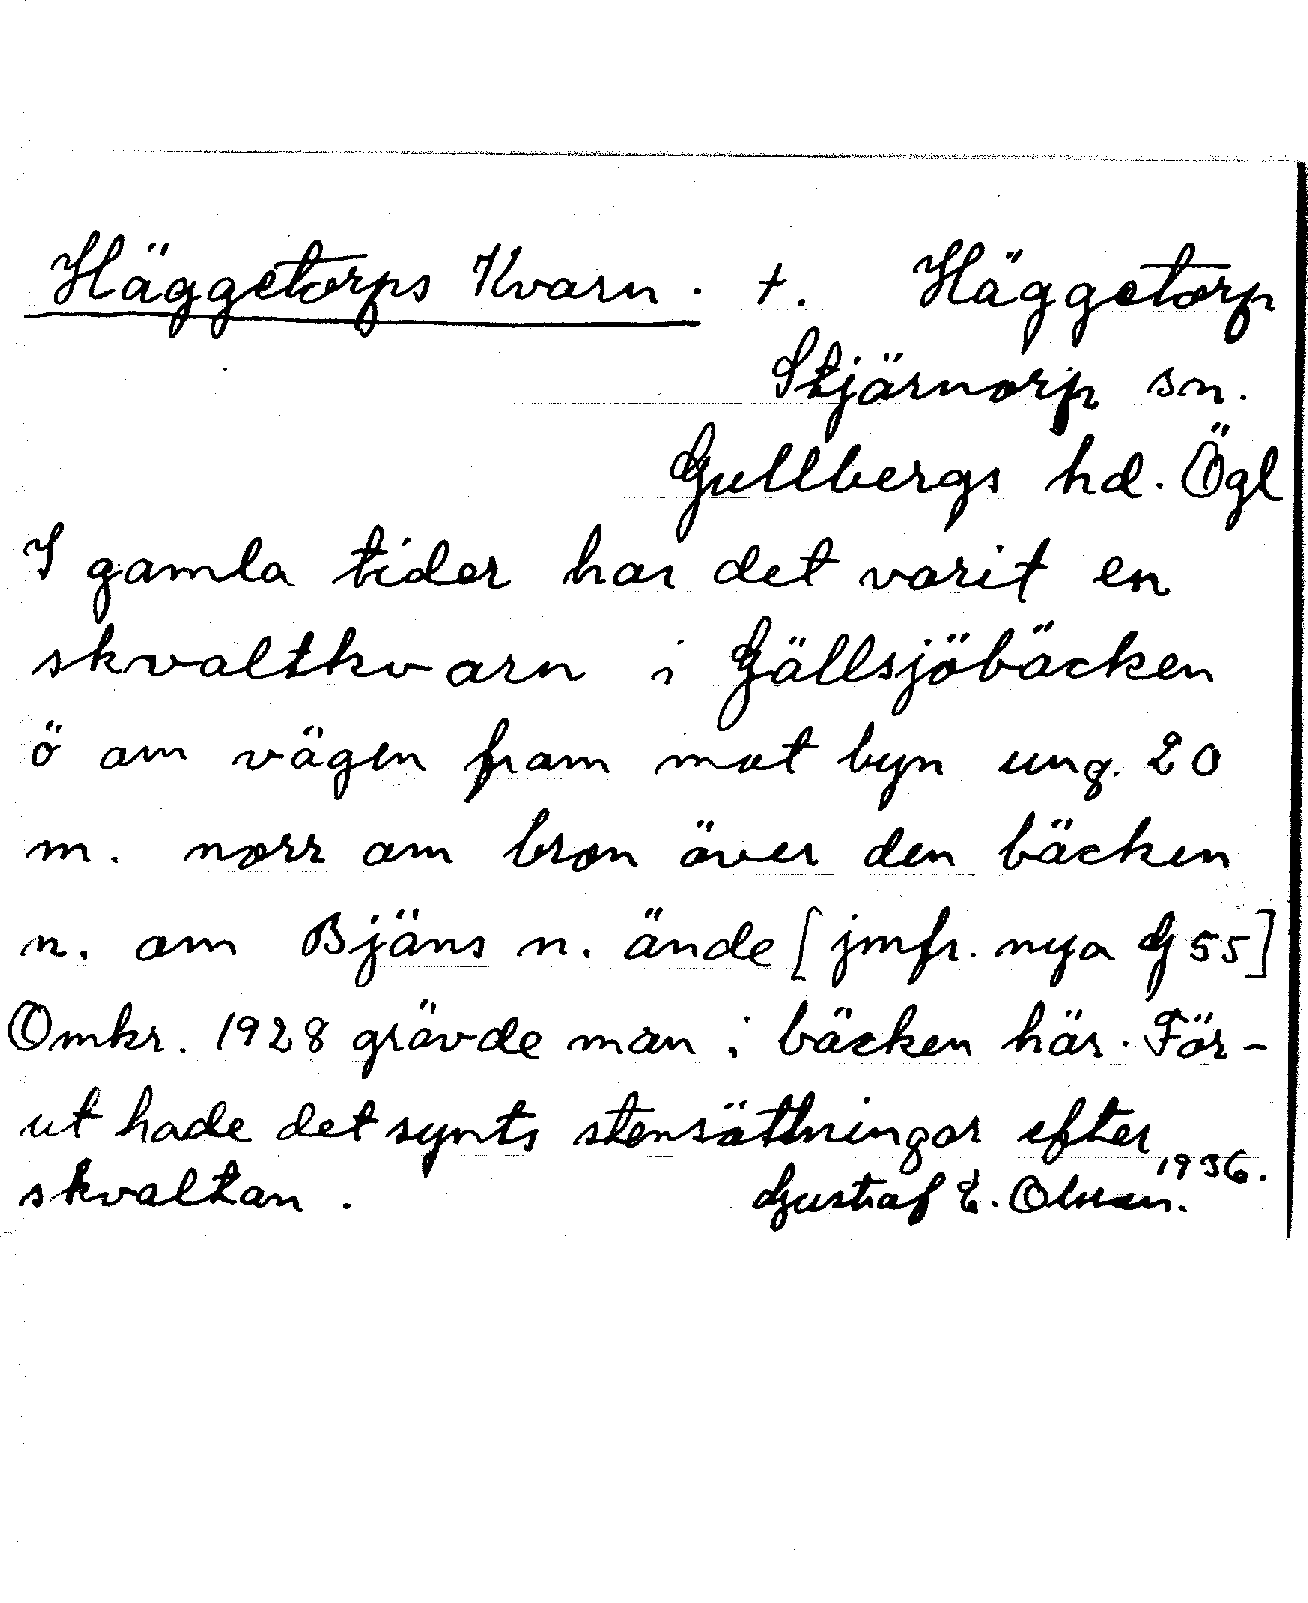 Häggetorps Kvarn. +. Häggetorp
Stjärnorp sn.
Gullbergs hd. Ögl
I gamla tider har det varit en
skvaltkvarn i Gällsjöbäcken
ö om vägen fram mot byn ung. 20
m. norr om bron över den bäcken
n. om Bjäns n. ände [jmfr. nya G 55]
Omkr. 1928 grävde man i bäcken här. För-
ut hade det synts stensättningar efter
skvaltan. Gustaf E. Olsson. 1936.